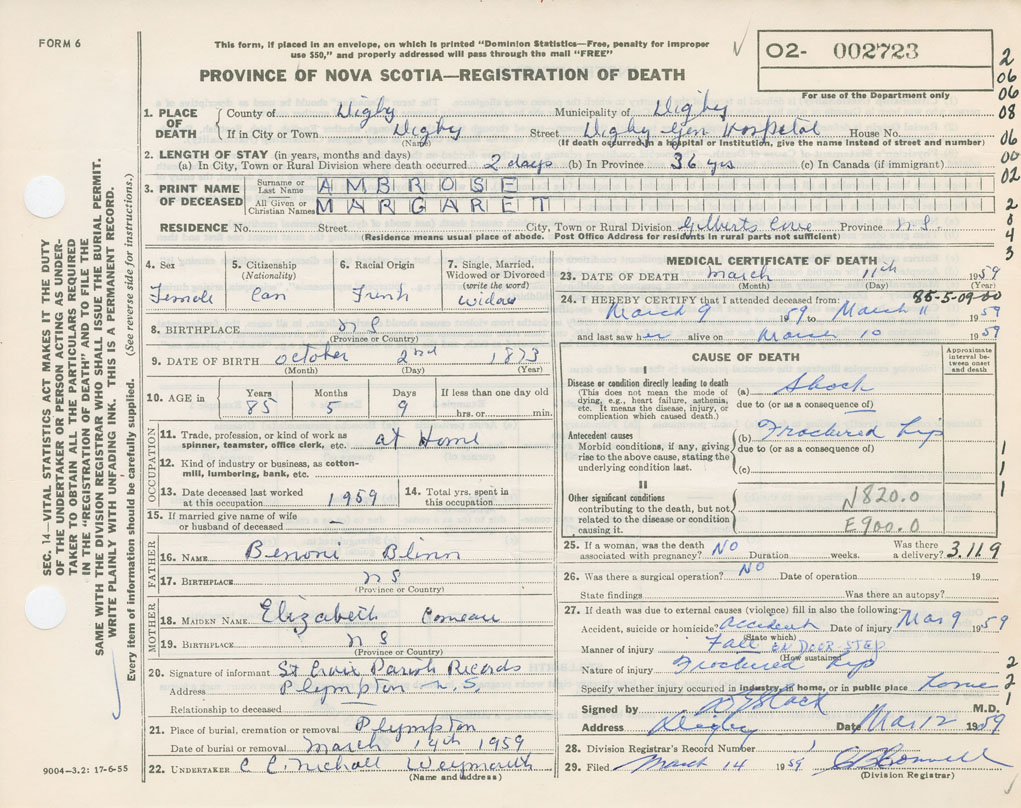 FORM 6
This form, if placed in an envelope, on which is printed "Dominion Statistics—Free, penalty for improper
use $50," and properly addressed will pass through the mail "FREE"
O2- 002723
For use of the Department only
PROVINCE OF NOVA SCOTIA—REGISTRATION OF DEATH
1. PLACE OF DEATH County of Digby Municipality of Digby
If in City or Town Digby Street Digby Gen Hospital House No.
(Name) (If death occurred in a hospital or institution, give the name instead of street and number)
2. LENGTH OF STAY (in years, months and days)
(a) In City, Town or Rural Division where death occurred 2 days (b) In Province 36 yrs (c) In Canada (if immigrant)
3. PRINT NAME OF DECEASED Surname or Last Name AMBROSE
All Given or Christian Names MARGARET
RESIDENCE No. Street City, Town or Rural Division Gilberts Cove Province N S.
(Residence means usual place of abode. Post Office Address for residents in rural parts not sufficient)
2
06
06
08
06
00
02
2
8
4
3
SEC. 14—VITAL STATISTICS ACT MAKES IT THE DUTY
OF THE UNDERTAKER OR PERSON ACTING AS UNDER-
TAKER TO OBTAIN ALL THE PARTICULARS REQUIRED
IN THE "REGISTRATION OF DEATH" AND TO FILE THE
SAME WITH THE DIVISION REGISTRAR WHO SHALL ISSUE THE BURIAL PERMIT.
WRITE PLAINLY WITH UNFADING INK. THIS IS A PERMANENT RECORD.
Every item of information should be carefully supplied. (See reverse side for instructions.)
4. Sex Female
5. Citizenship (Nationality) Can
6. Racial Origin French
7. Single, Married, Widowed or Divorced (write the word) Widow
8. BIRTHPLACE N S
(Province or Country)
9. DATE OF BIRTH October 2nd 1873
(Month) (Day) (Year)
10. AGE in Years 85 Months 5 Days 9 If less than one day old hrs. or min.
OCCUPATION
11. Trade, profession, or kind of work as spinner, teamster, office clerk, etc. at Home
12. Kind of industry or business, as cotton-mill, lumbering, bank, etc.
13. Date deceased last worked at this occupation 1959
14. Total yrs. spent in this occupation
15. If married give name of wife or husband of deceased —
FATHER
16. NAME Benoni Blinn
17. BIRTHPLACE N S
(Province or Country)
MOTHER
18. MAIDEN NAME Elizabeth Comeau
19. BIRTHPLACE N S
(Province or Country)
20. Signature of informant St Croix Parish Records
Address Plympton N. S.
Relationship to deceased
21. Place of burial, cremation or removal Plympton
Date of burial or removal March 14th 1959
22. UNDERTAKER Weymouth
(Name and address)
9004—3.2: 17-6-55
MEDICAL CERTIFICATE OF DEATH
23. DATE OF DEATH March 11th 1959
(Month) (Day) (Year)
85-5-09-00
24. I HEREBY CERTIFY that I attended deceased from:
March 9 1959 to March 11 1959
and last saw her alive on March 10 1959
CAUSE OF DEATH
Approximate interval between onset and death
I
Disease or condition directly leading to death
(This does not mean the mode of dying, e.g., heart failure, asthenia, etc. It means the disease, injury, or complication which caused death.)
(a) Shock
due to (or as a consequence of)
Antecedent causes
Morbid conditions, if any, giving rise to the above cause, stating the underlying condition last.
(b) Fractured hip
due to (or as a consequence of)
(c)
1
1
1
II
Other significant conditions
contributing to the death, but not related to the disease or condition causing it.
N820.0
E900.0
25. If a woman, was the death associated with pregnancy? NO Duration weeks. Was there a delivery? 3.119
26. Was there a surgical operation? NO Date of operation 19
State findings Was there an autopsy?
27. If death was due to external causes (violence) fill in also the following:
Accident, suicide or homicide? accident Date of injury Mar 9 1959
(State which)
Manner of injury Fall ON DOOR STEP
(How sustained)
Nature of injury Fractured hip
Specify whether injury occurred in industry, in home, or in public place home
2
2
1
Signed by M.D.
Address Digby Date Mar 12 1959
28. Division Registrar's Record Number 1
29. Filed March 14 1959
(Division Registrar)